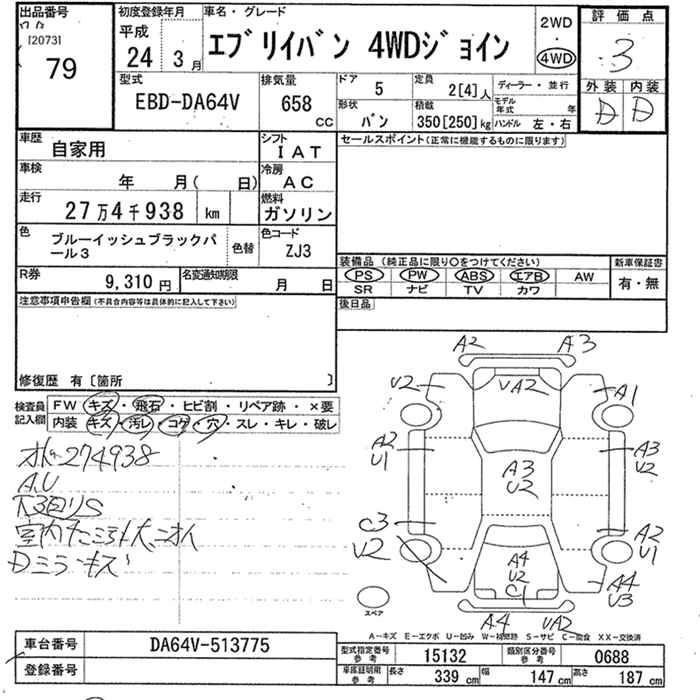 出品番号
[2073]
79
初度登録年月
平成
24 3月
車名・グレード
エブリイバン 4WDジョイン
2WD
・
4WD
評価点
3
外装 内装
D D
型式
EBD-DA64V
排気量
658 CC
ドア 5
定員 2[4]人
形状 バン
積載 350[250]kg
ディーラー・並行
モデル年式 年
ハンドル 左・右
車歴
自家用
シフト
IAT
車検
年 月( 日)
冷房
AC
走行
27万4千938 km
燃料
ガソリン
色
ブルーイッシュブラックパール3
色替
色コード
ZJ3
R券
9,310円
名変通知期限
月 日
セールスポイント(正常に機能するものに限ります)
装備品(純正品に限り○をつけてください)
PS PW ABS エアB AW
SR ナビ TV カワ
新車保証書
有・無
後日品
注意事項申告欄(不具合内容等は具体的に記入して下さい)
修復歴 有〔箇所 〕
検査員記入欄
FW キズ・飛石・ヒビ割・リペア跡・×要
内装 キズ・汚レ・コゲ・穴・スレ・キレ・破レ
274938
A,U
下回りS
室内
Dミラーキズ
A2 A3
V2 VA2 A1
A2 U1 A3 U2 A3 V2
C3 V2 A4 U2 C1 A2 U1
A4 U3
A4 VA2
スペア
A-キズ E-エクボ U-凹み W-補修跡 S-サビ C-腐食 XX-交換済
車台番号 DA64V-513775
登録番号
型式指定番号 参考 15132
類別区分番号 参考 0688
車庫証明用 参考 長さ 339cm 幅 147cm 高さ 187cm